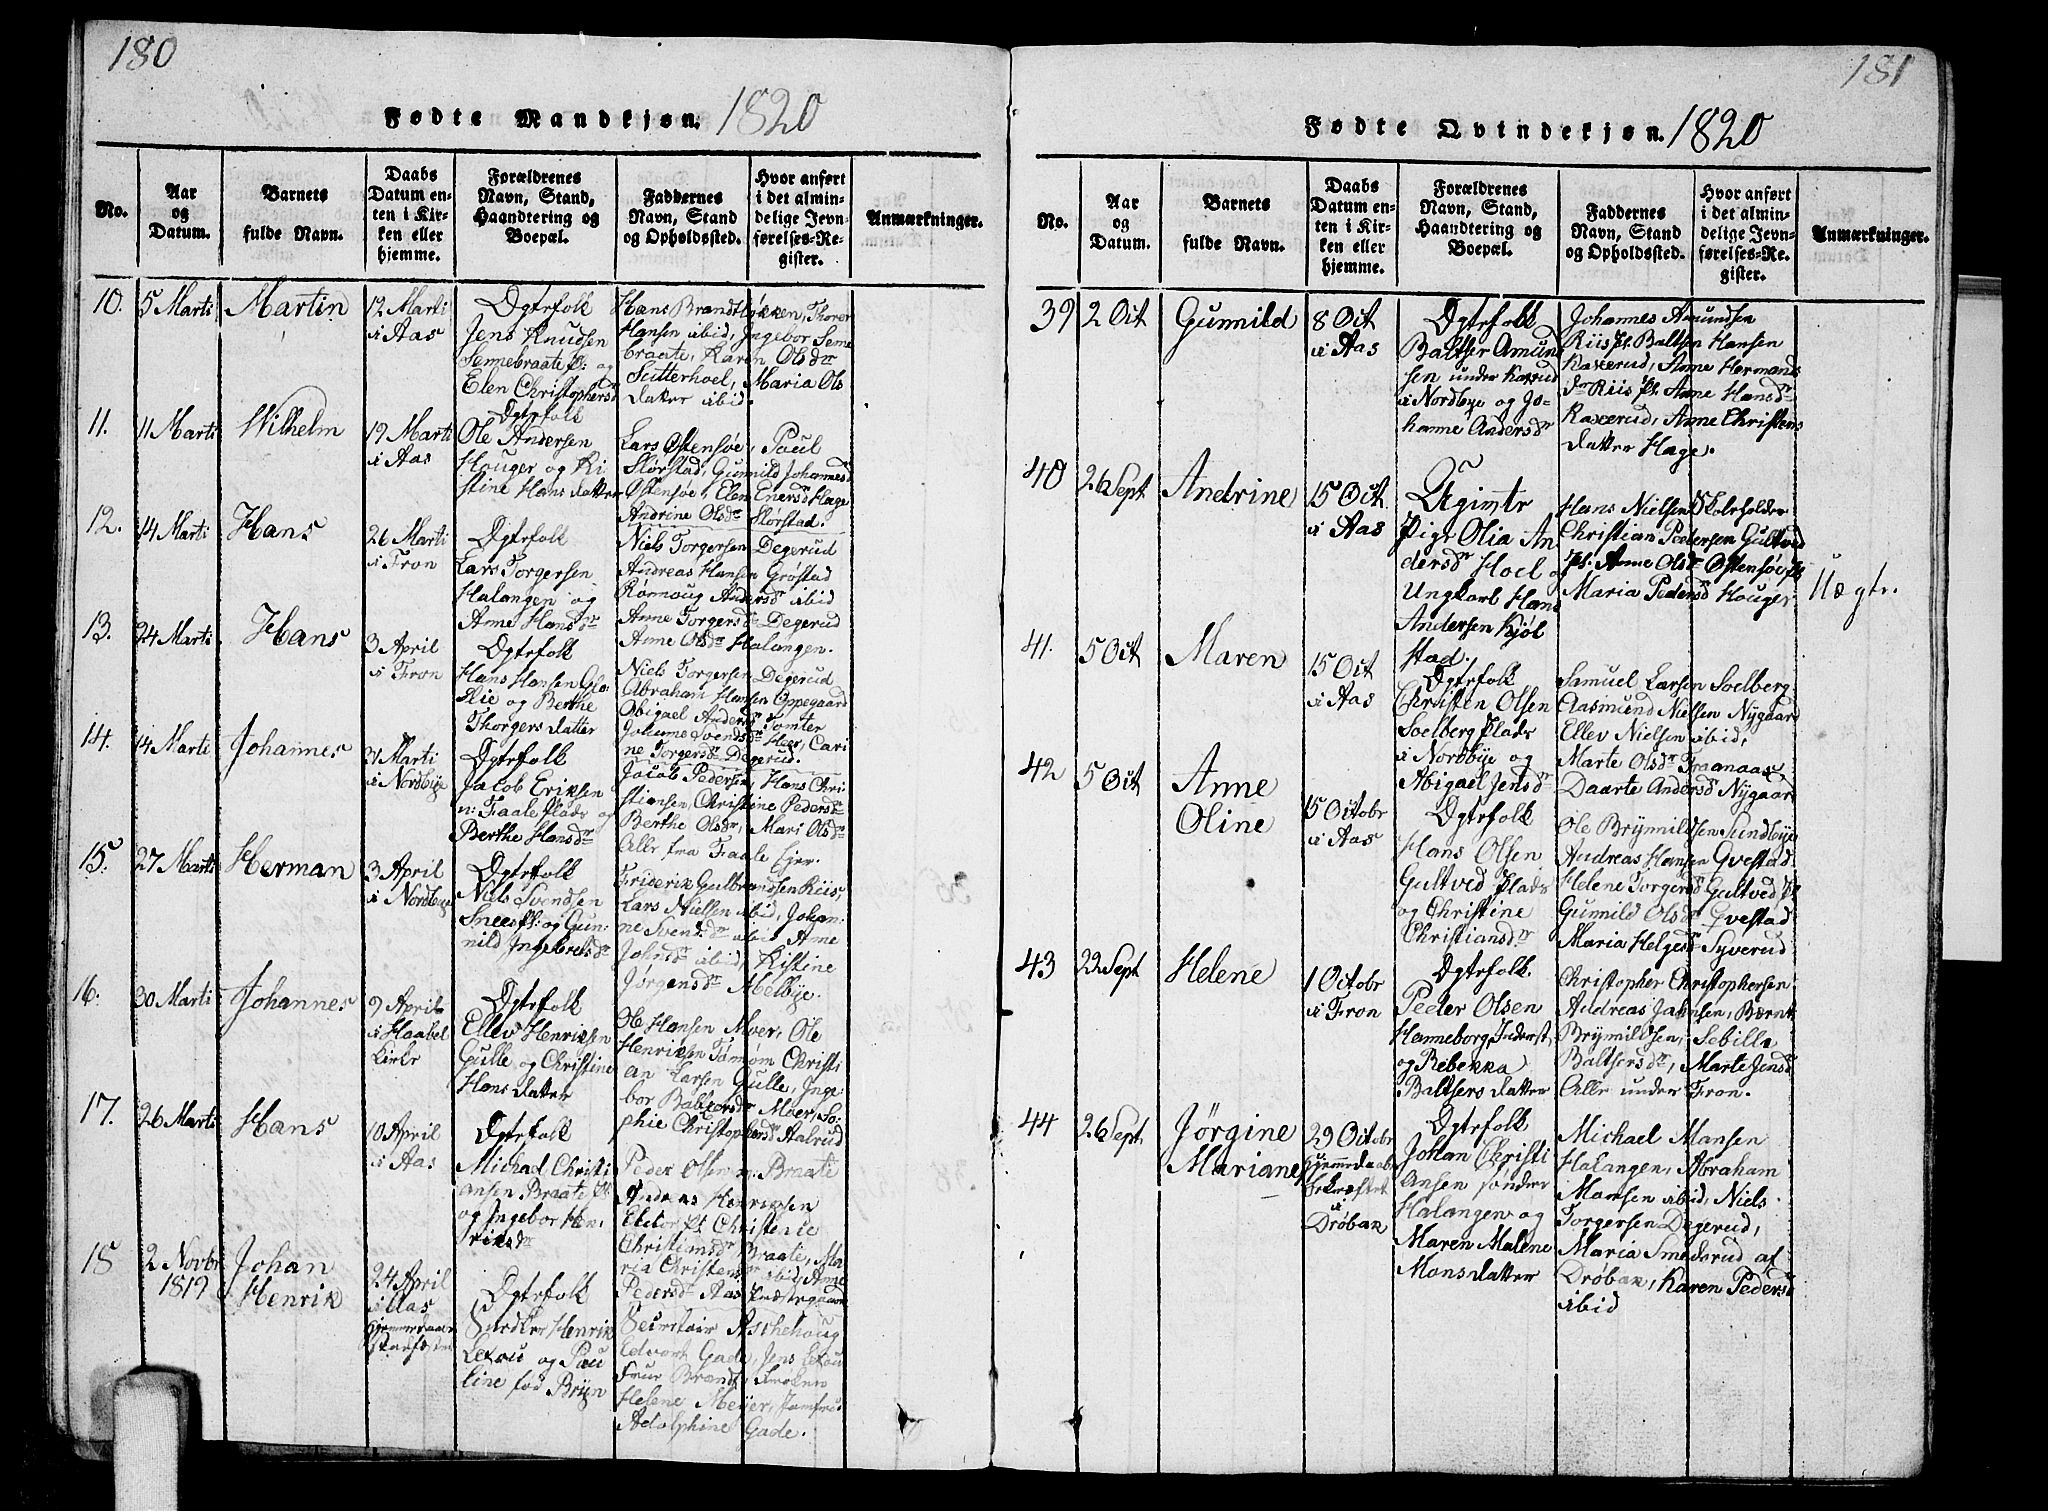 180
Fødte Mandkjøn. 1820
No.
Aar
og
Datum.
Barnets
fulde Navn.
Daabs
Datum en-
ten i Kir-
ken eller
hjemme.
Forældrenes
Navn, Stand,
Haandtering og
Boepæl.
Faddernes
Navn, Stand
og Opholdssted.
Hvor anført
i det almin-
delige Jevn-
førelses-Re-
gister.
Anmærkninger.
10.
5 Marti
Martin
12 Marti
i Aas
Ægtefolk
Jens Knudsen
Sennebraate Pl: og
Elen Christophersd
Hans Brandtløkken, Thorer
Hansen ibid, Ingebor Senne
braate, Karen Olsdr
Sutterhoel, Maria Ols
datter ibid.
11.
11 Marti
Wilhelm
19 Marti
i Aas
Ægtefolk
Ole Andersen
Houger og Ki
stine Hansdatter
Lars Østensøe, Paul
Slørstad, Gunnild Johannesd
Østensøe, Elen Enersdr Hage
Andrine Olsdr Slørstad.
12.
14 Marti
Hans
26 Marti
i Fron
Ægtefolk
Lars Torgersen
Halangen og
Anne Hansdr
Niels Torgersen Degerud
Andreas Hansen Grøstad
Rønnoug Andersd ibid
Anne Torgersd Degerud
Anne Olsdr Halangen.
13.
24 Marti
Hans
3 April
i Fron
Ægtefolk
Hans Hansen Glo
slie og Berthe
Thorgersdatter
Niels Torgersen Degerud
Abraham Hansen Oppegaard
Abigael Andersd Tomter
Johanne Svendsdr Hier, Cari
ne Torgersdr Degerud.
14.
14 Marti
Johannes
31 Marti
i Nordbye
Ægtefolk
Jacob Eriksen
n: Faale Plads og
Berthe Hansdr
Jacob Pedersen, Hans Chri
stiansen, Christine Pedersdr
Berthe Olsdr, Mari Olsdr
Alle fra Faale Eier.
15.
27 Marti
Herman
3 April
i Nordbye
Ægtefolk
Niels Svendsen
Snees Pl: og Gun-
nild Ingebretsdr
Friderik Gulbrandsen Riis,
Lars Nielsen ibid, Johan-
ne Svendsdr ibid Anne
Johnsdr ibid, Kistine
Jørgensdr Melbye.
16.
30 Marti
Johannes
9 April
i Haabel
Kirke
Ægtefolk
Ellev Henriksen
Gulle og Christine
Hansdatter
Ole Hansen Moer, Ole
Henriksen Tømøm Christi
an Larsen Gulle, Inge-
bor Baltzersdr Moer, So-
phie Christophersd Aalrud
17.
26 Marti
Hans
10 April
i Aas
Ægtefolk
Michael Christi
ansen Braate Pl
og Ingebor Hen-
riksdr
Peder Olsen n: Braate
Andreas Henriksen
Eketor Pl Christense
Christiansdr Braate, Ma
ria Christensd ibid, Anne
Pedersdr Aas Præstegaard
18
2 Novbr
1819
Johan
Henrik
24 April
i Aas
Hjemmedaab
Stadfæstet
Ægtefolk
Henrik
Lexou og Pau
line fød Bryn
Secretair Aschehoug
Edvort Gade, Jens Lexou
Frue Brandt, Frøken
Helene Meyer, Jomfru
Adolphine Gade.
181
Fødte Qvindekjøn. 1820
No.
Aar
og
Datum.
Barnets
fulde Navn.
Daabs
Datum en-
ten i Kir-
ken eller
hjemme.
Forældrenes
Navn, Stand,
Haandtering og
Boepæl.
Faddernes
Navn, Stand
og Opholdssted.
Hvor anført
i det almin-
delige Jevn-
førelses-Re-
gister.
Anmærkninger.
39
2 Oct
Gunnild
8 Oct
i Aas
Ægtefolk
Baltser Amund
sen under Kaxrud
i Nordbye og Jo-
hanne Andersdr
Johannes Amundsen
Riis Pl. Baltser Hansen
Kaxerud, Anne Hermans
dr Riis Pl. Anne Hansdr
Kaxerud, Anne Christens
datter Hage.
40
26 Sept
Andrine
15 Oct
i Aas
Ugivte
Pige Olia An
dersdr Hoel og
Ungkarl Hans
Andersen Kjøl
stad.
Hans Nielsen Skoleholder
Christian Pedersen Gultved
Pl. Anne Olsdr Østensøe Pl
Maria Pedersd Houger
Uægte.
41.
5 Oct
Maren
15 Oct
i Aas
Ægtefolk
Christen Olsen
Soelberg Plads
i Nordbye og
Abigael Jensdr
Samuel Larsen Soelberg
Aasmund Nielsen Nygaard
Ellev Nielsen ibid,
Marte Olsdr Fraanaas,
Daarte Andersd Nygaard
42
5 Oct
Anne
Oline
15 Octobr
i Aas
Ægtefolk
Hans Olsen
Gultved Plads
og Christine
Christiansdr
Ole Brynnildsen Sundbye
Andreas Hansen Qvestad
Helene Torgersd Gultved Pl
Gunnild Olsdr Qvestad
Maria Helgesd Syverud
43
23 Sept
Helene
1 Octobr
i Fron
Ægtefolk
Peder Olsen
Hanneborg Inderst,
og Rebekka
Baltsersdatter
Christopher Christophersen
Andreas Jahnsen, Bærnt
Brynnildsen, Sebille
Baltsersdr, Marte Jensd
Alle under Fron.
44
26 Sept
Jørgine
Mariane
29 Octobr
Hjemmedaab
bekræftet
i
Drøbak
Ægtefolk
Johan Christi
Ansen sønder
Halangen og
Maren Malene
Monsdatter
Michael Mansen
Halangen, Abraham
Monsen ibid, Niels
Torgersen Degerud,
Maria Smedsrud af
Drøbak, Karen Pedersd
ibid